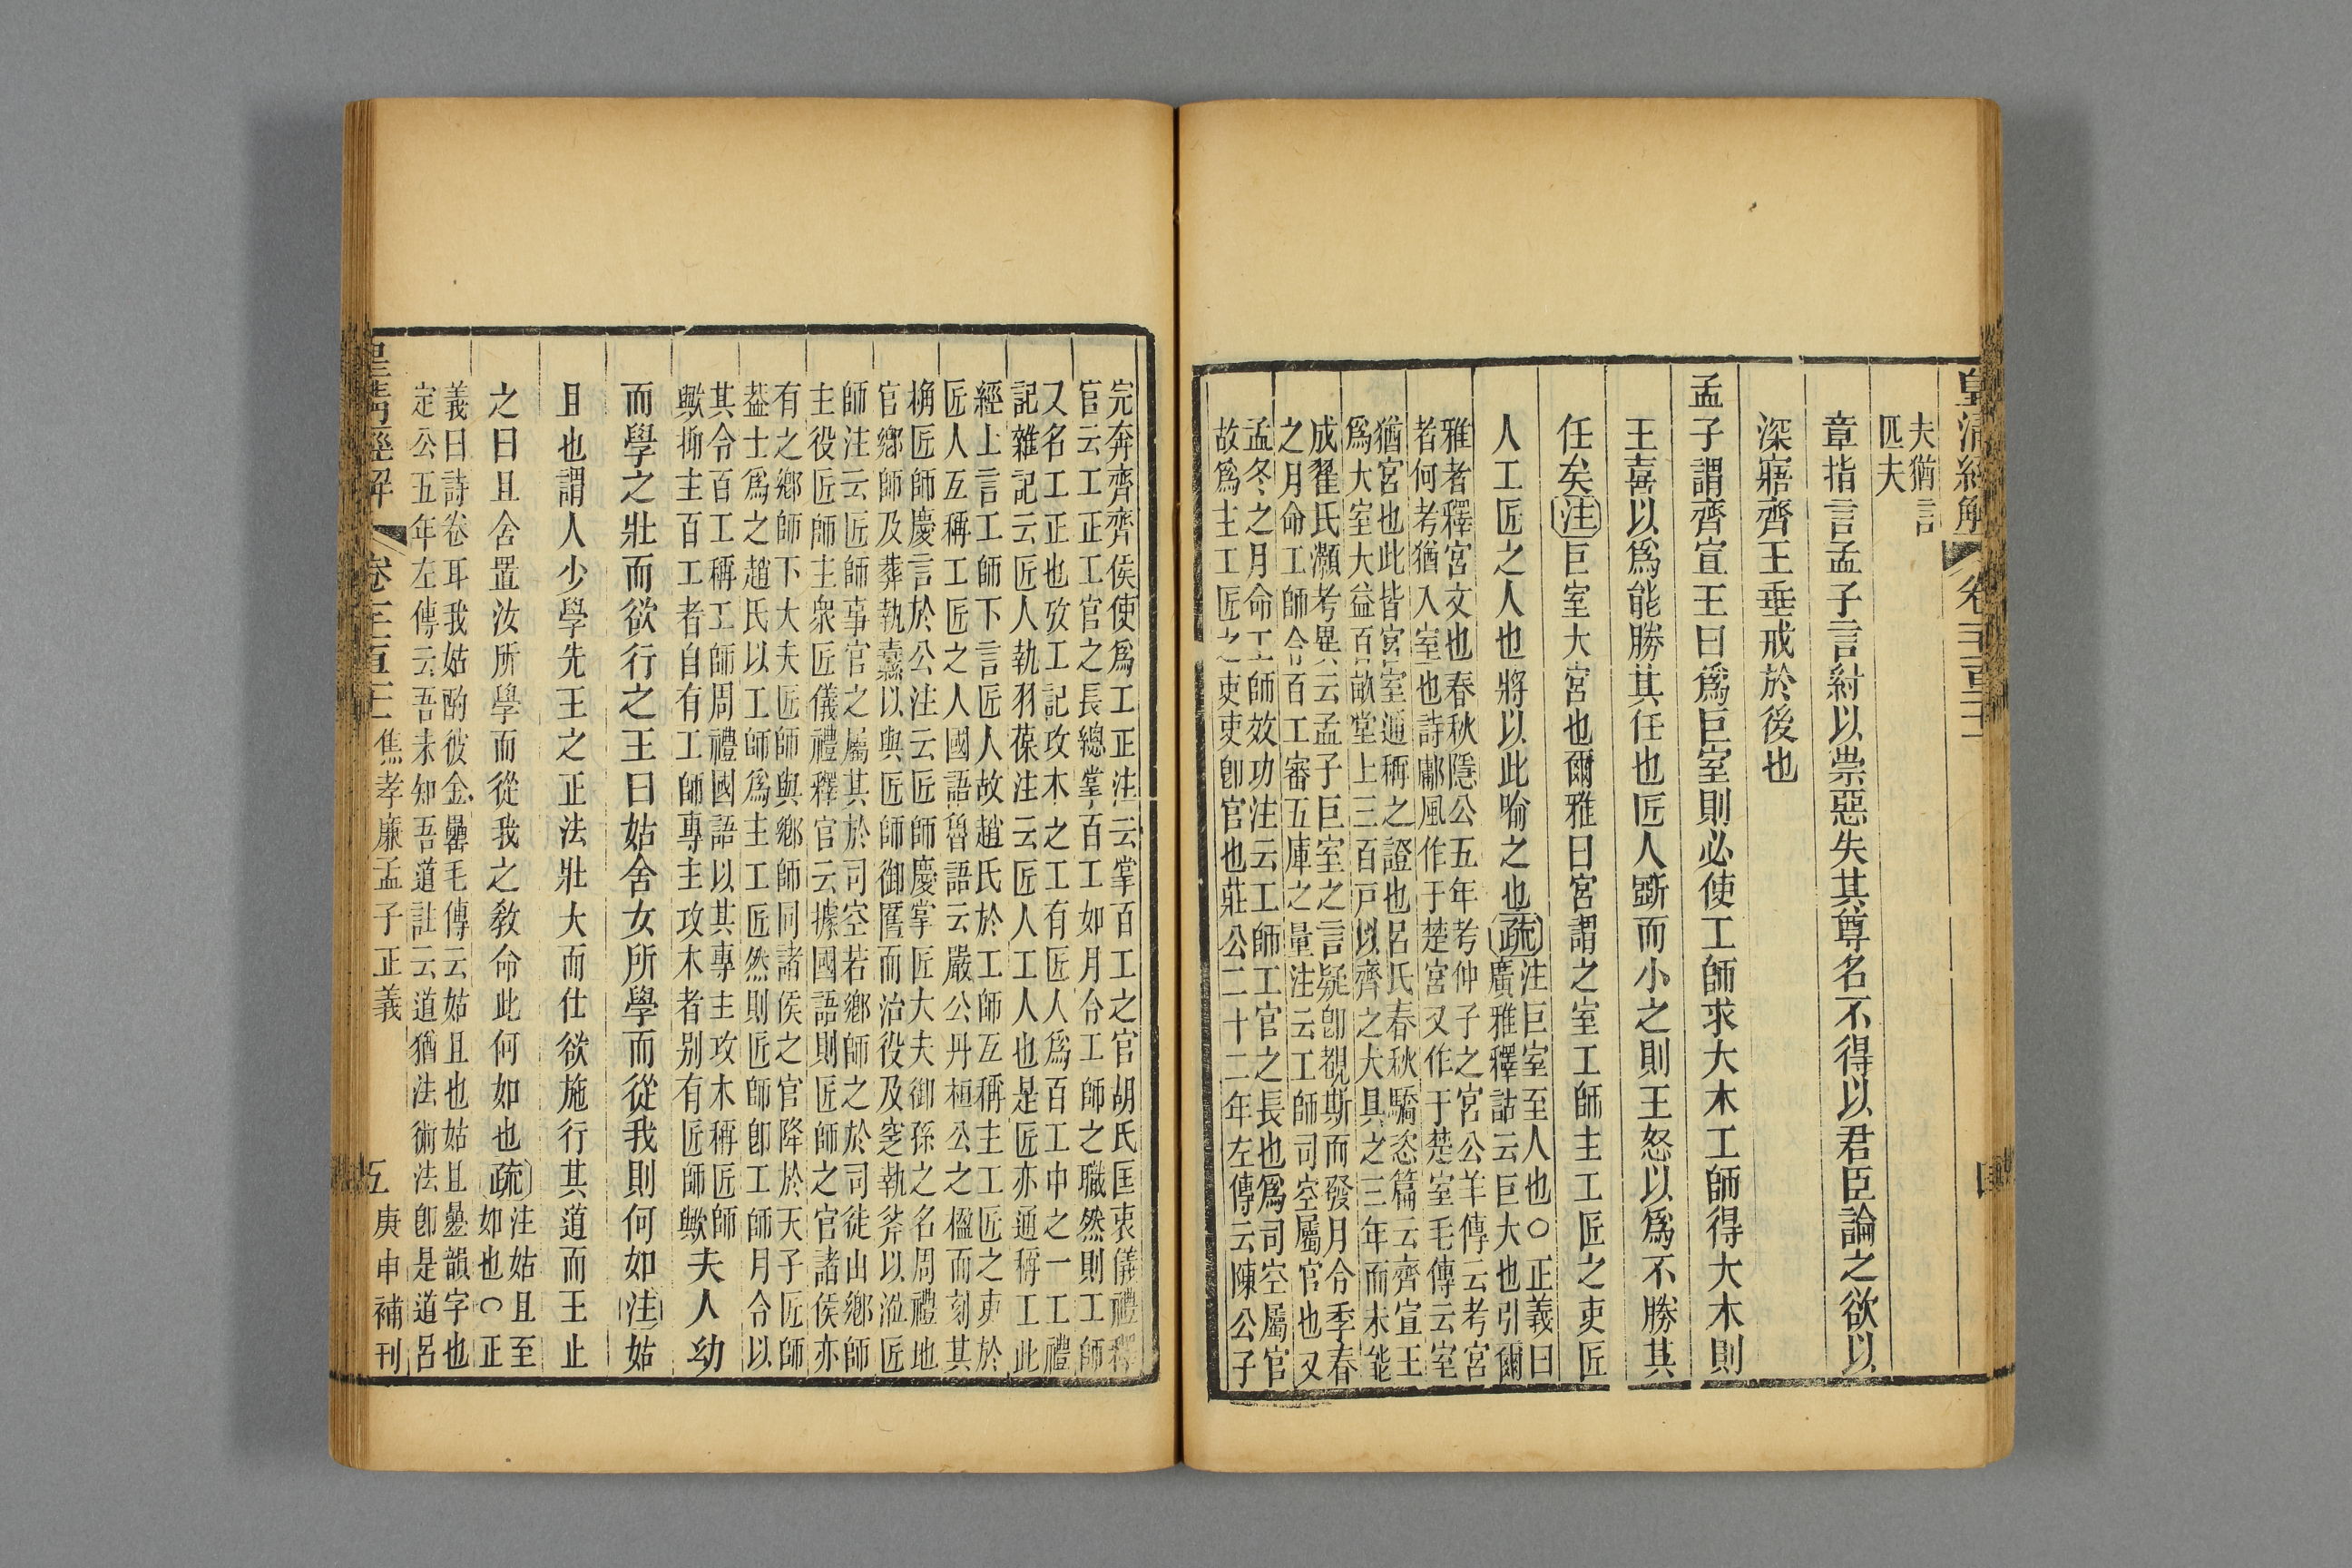 皇清經解 卷
夫猶言
匹夫
章指言孟子言紂以崇惡失其尊名不得以君臣論之欲以
深寤齊王垂戒於後也
孟子謂齊宣王曰爲巨室則必使工師求大木工師得大木則
王喜以爲能勝其任也匠人斲而小之則王怒以爲不勝其
任矣注巨室大宮也爾雅曰宮謂之室工師主工匠之吏匠
人工匠之人也將以此喻之也疏
注巨室至人也○正義曰
廣雅釋詁云巨大也引爾
雅者釋宮文也春秋隱公五年考仲子之宮公羊傳云考宮
者何考猶入室也詩鄘風作于楚宮又作于楚室毛傳云室
猶宮也此皆宮室通稱之證也呂氏春秋驕恣篇云齊宣王
爲大室大益百畝堂上三百戸以齊之大具之三年而未能
成翟氏灝考異云孟子巨室之言疑卽覩斯而發月令季春
之月命工師令百工審五庫之量注云工師司空屬官也又
孟冬之月命工師效功注云工師工官之長也爲司空屬官
故爲主工匠之吏吏卽官也莊公二十二年左傳云陳公子
完奔齊齊侯使爲工正注云掌百工之官胡氏匡衷儀禮釋
官云工正工官之長總掌百工如月令工師之職然則工師
又名工正也攷工記攻木之工有匠人爲百工中之一工禮
記雜記云匠人執羽葆注云匠人工人也是匠亦通稱工此
經上言工師下言匠人故趙氏於工師互稱主工匠之吏於
匠人互稱工匠之人國語魯語云嚴公丹桓公之楹而刻其
桷匠師慶言於公注云匠師慶掌匠大夫御孫之名周禮地
官鄉師及葬執纛以與匠師御匶而治役及窆執斧以涖匠
師注云匠師事官之屬其於司空若鄉師之於司徒山鄉師
主役匠師主衆匠儀禮釋官云據國語則匠師之官諸侯亦
有之鄉師下大夫匠師與鄉師同諸侯之官降於天子匠師
葢士爲之趙氏以工師爲主工匠然則匠師卽工師月令以
其令百工稱工師周禮國語以其專主攻木稱匠師
歟抑主百工者自有工師專主攻木者别有匠師歟
夫人幼
而學之壯而欲行之王曰姑舍女所學而從我則何如注姑
且也謂人少學先王之正法壯大而仕欲施行其道而王止
之曰且舍置汝所學而從我之敎命此何如也疏
注姑且至
如也○正
義曰詩卷耳我姑酌彼金罍毛傳云姑且也姑且疊韻字也
定公五年左傳云吾未知吾道註云道猶法術法卽是道呂
皇淸經解 卷 焦孝廉孟子正義 五 庚申補刊